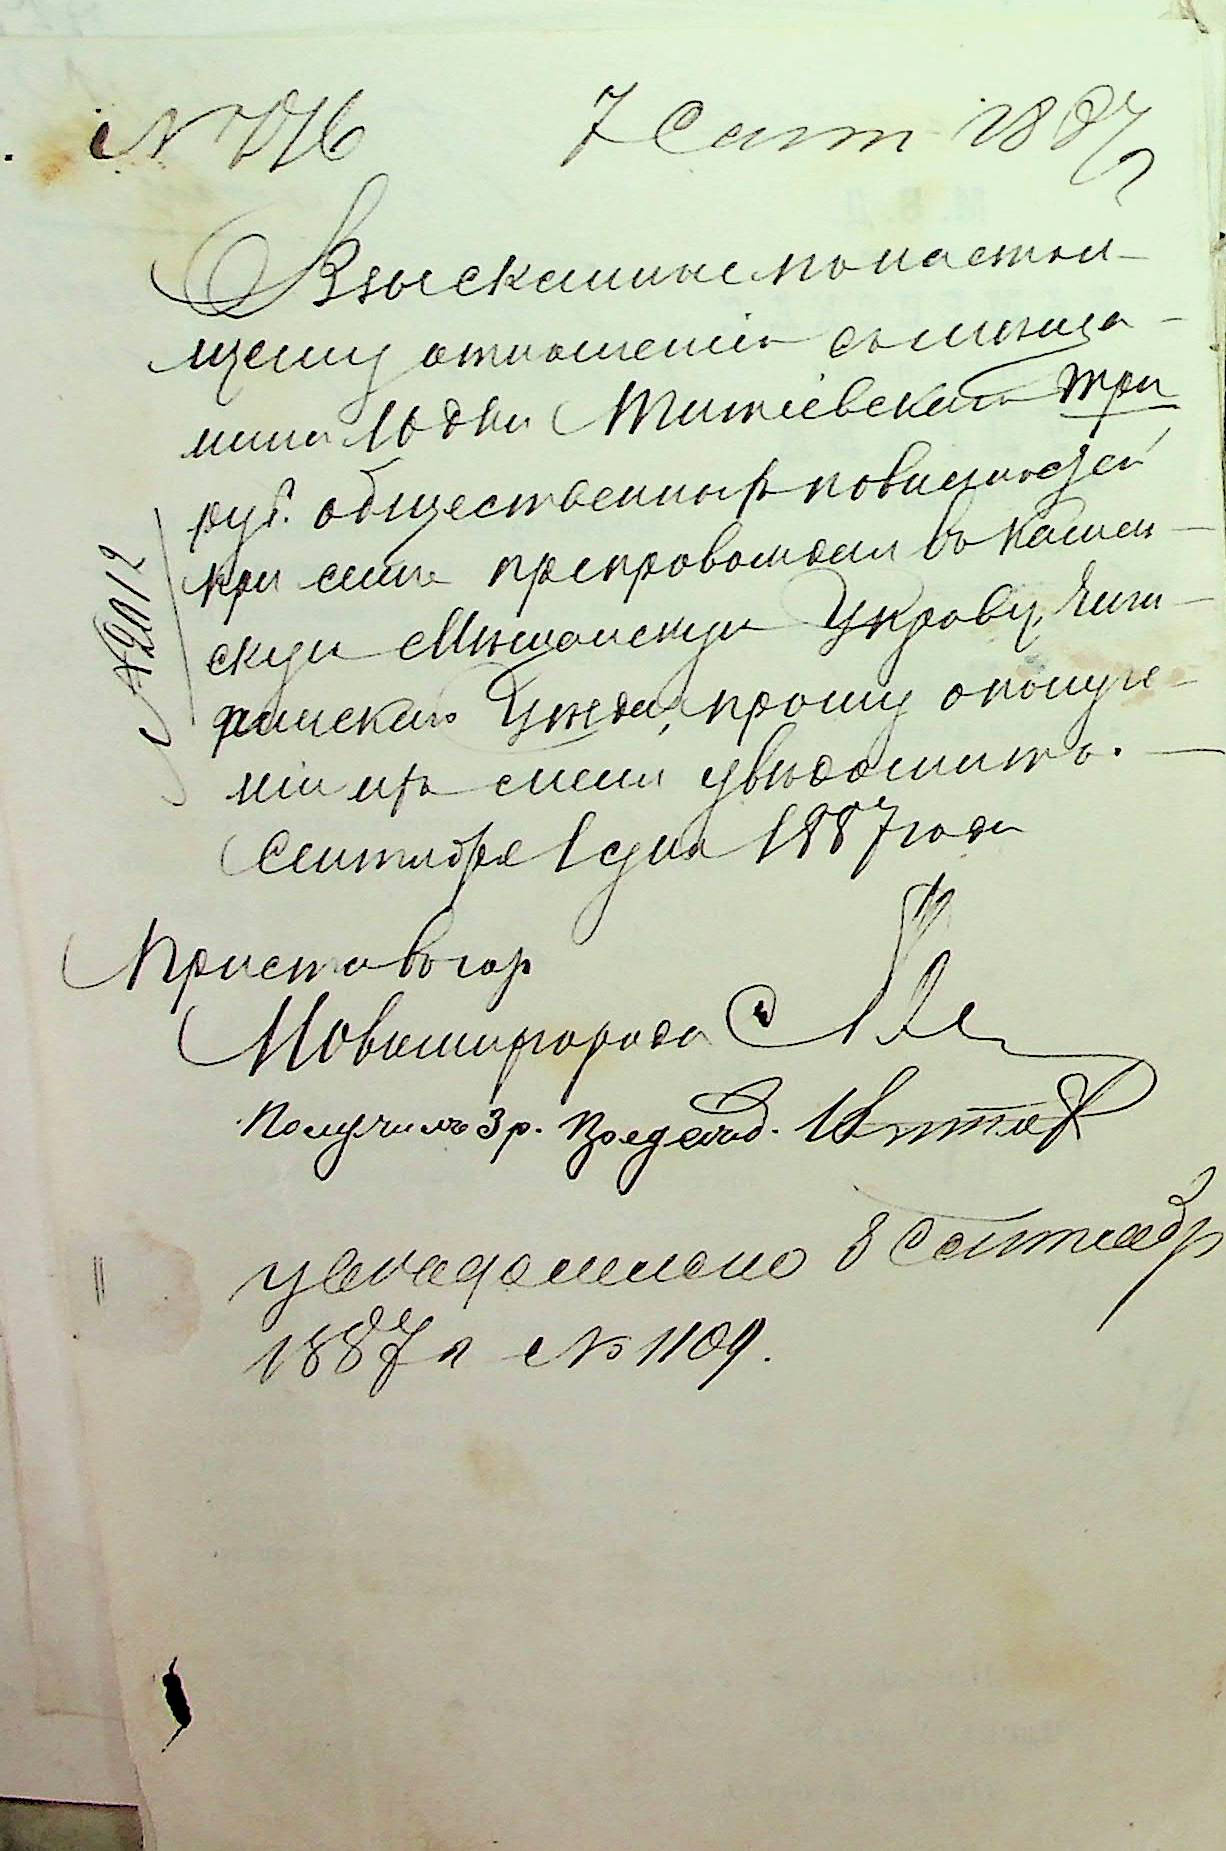 № 776 7 Сент 1887
Взысканные по настоя-
щему отношению съ меща-
нина Юдки три
руб. общественныхъ повинностей
при семъ препровождая въ Камен-
скую Мѣщанскую Управу, Чиги-
ринскаго Уѣзда, прошу о получе-
ніи ихъ меня увѣдомить.
Сентября 1 дня 1887 года
№ 2012
Приставъ гор
Новомиргорода
Получилъ 3 р.
уведомлено 8 Сентябр
1887 г № 1109.